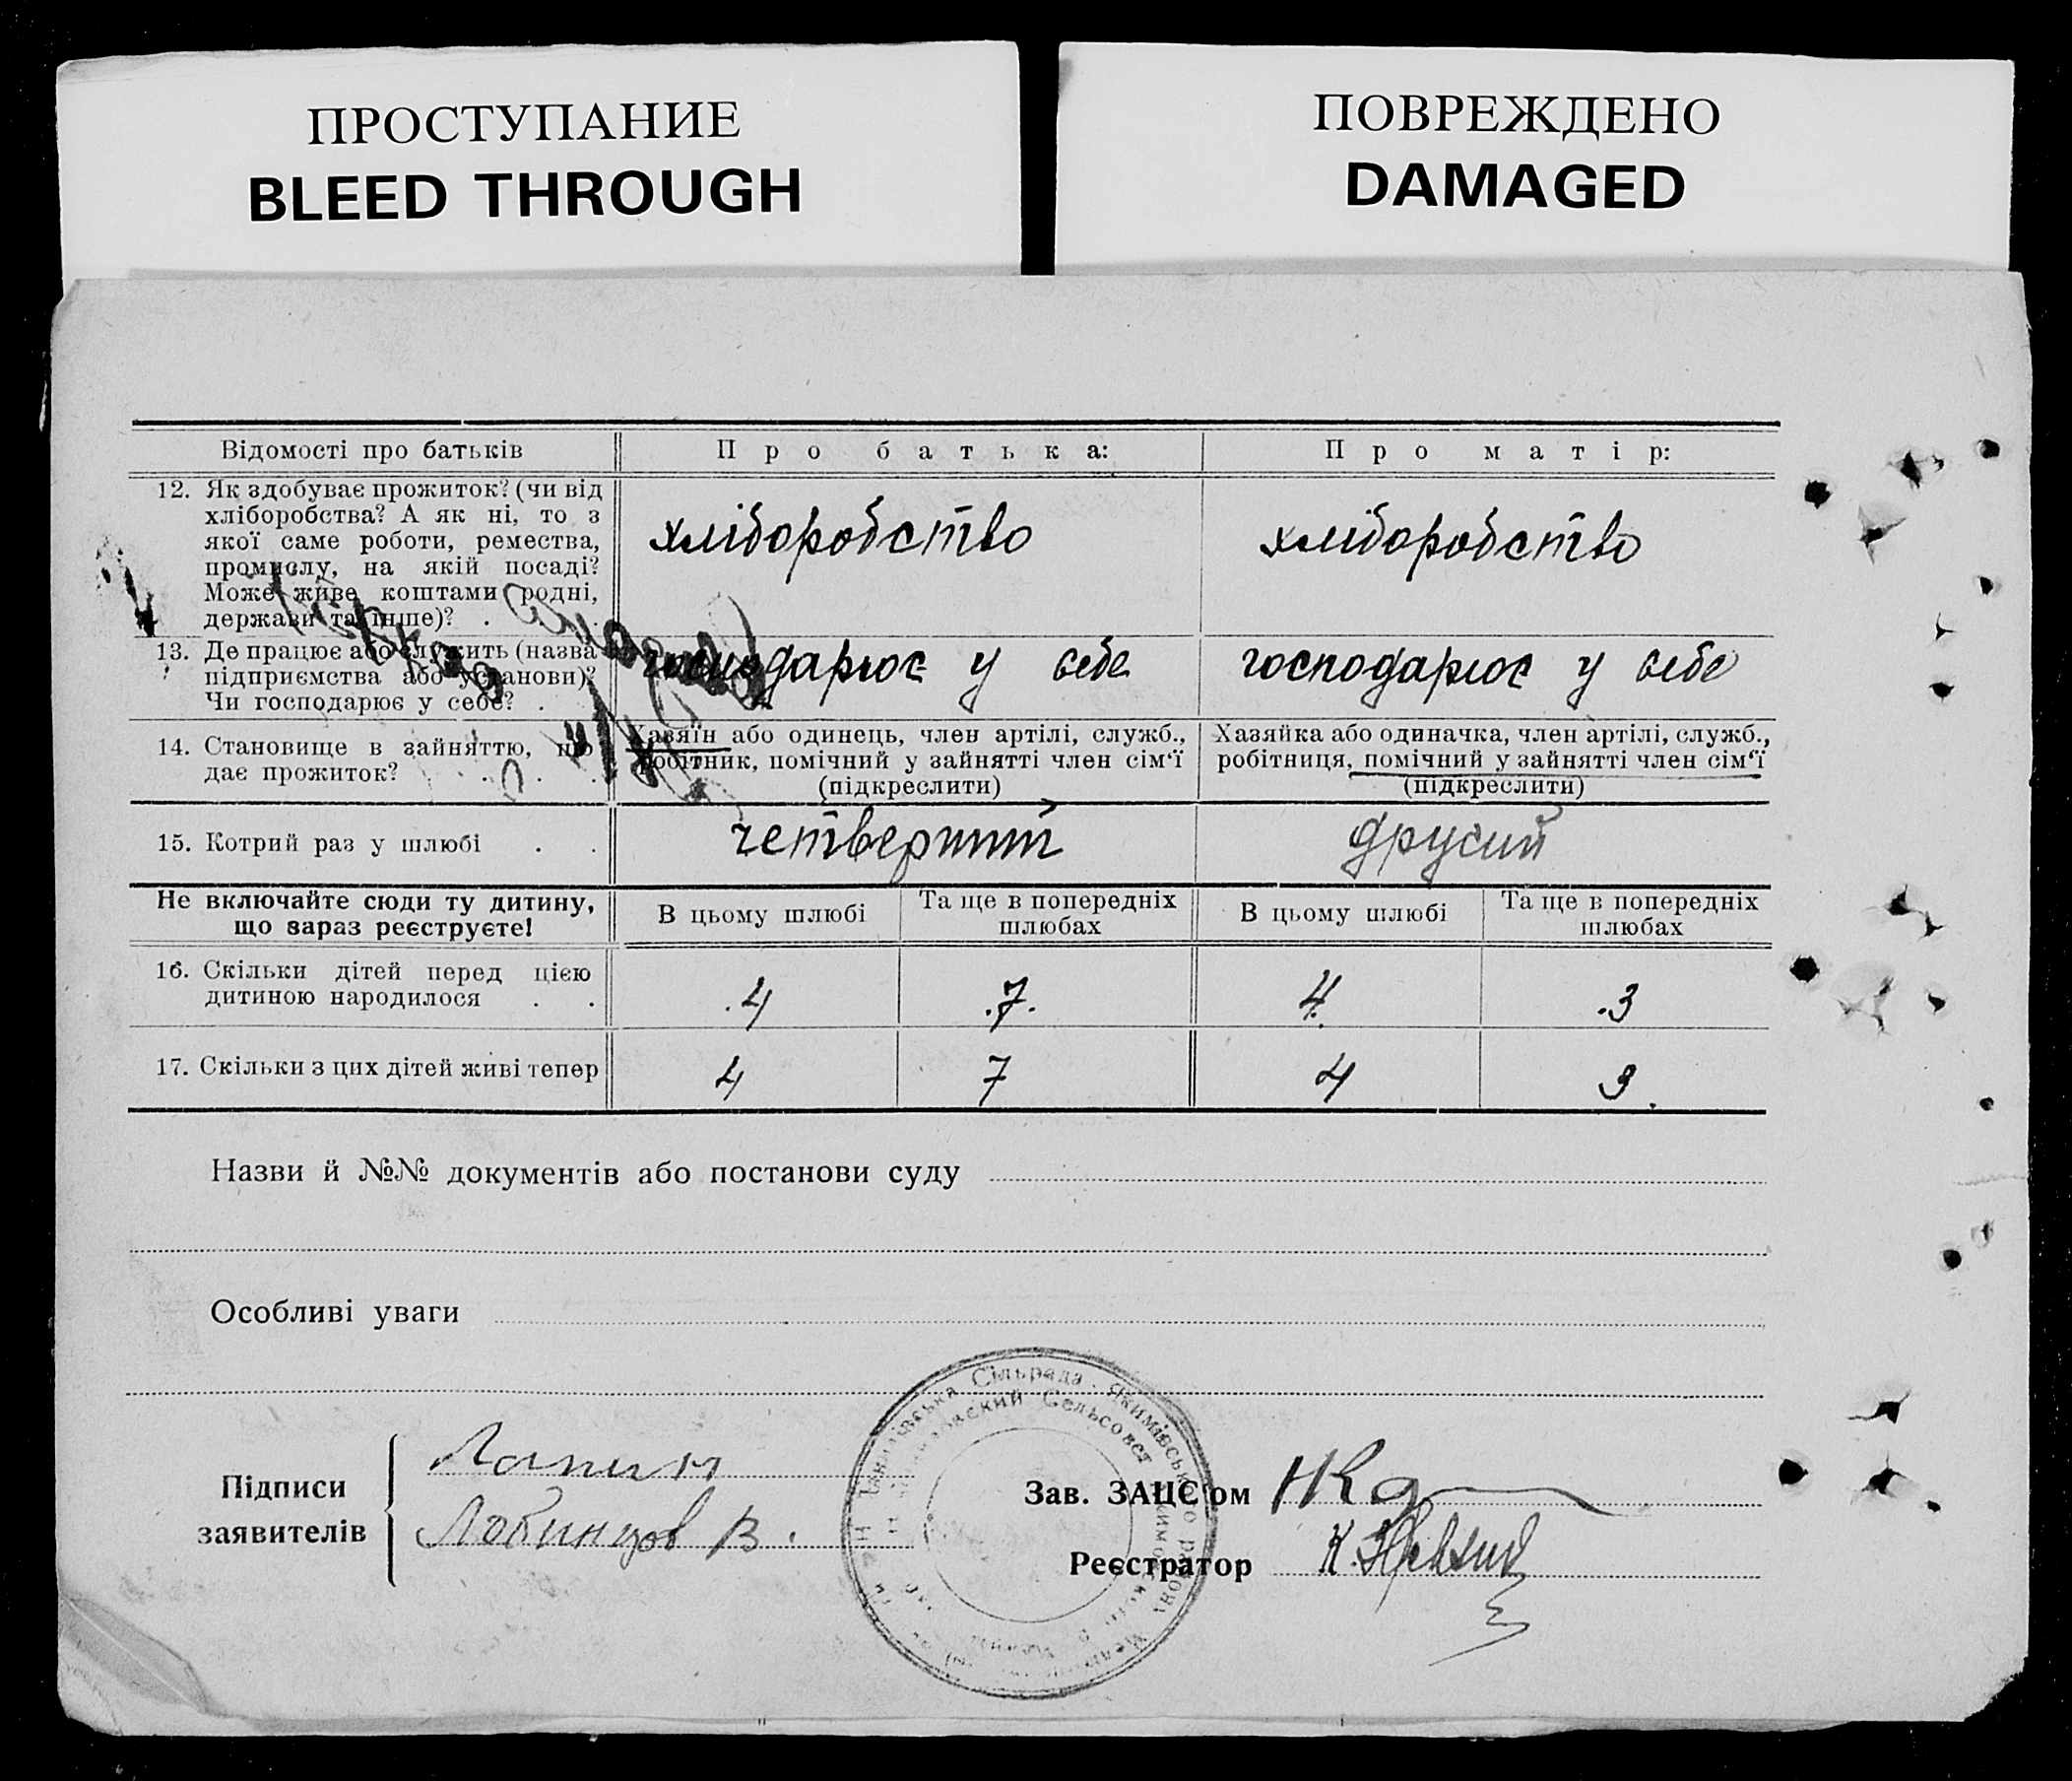 ПРОСТУПАНИЕ
BLEED THROUGH
ПОВРЕЖДЕНО
DAMAGED
Відомості про батьків
Про батька:
Про матір:
12. Як здобуває прожиток? (чи від
хліборобства? А як ні, то з
якої саме роботи, ремества,
промислу, на якій посаді?
Може живе коштами родні,
держави та інше)? . .
хліборобство
хліборобство
13. Де працює або служить (назва
підприємства або установи)?
Чи господарює у себе? .
господарює у себе
господарює у себе
14. Становище в зайняттю, що
дає прожиток? . . . .
Хазяїн або одинець, член артілі, служб.,
робітник, помічний у зайнятті член сім'ї
(підкреслити)
Хазяйка або одиначка, член артілі, служб.,
робітниця, помічний у зайнятті член сім'ї
(підкреслити)
15. Котрий раз у шлюбі . .
четвертий
другий
Не включайте сюди ту дитину,
що зараз реєструєте!
В цьому шлюбі
Та ще в попередніх
шлюбах
В цьому шлюбі
Та ще в попередніх
шлюбах
16. Скільки дітей перед цією
дитиною народилося . .
.4
.7.
4.
.3
17. Скільки з цих дітей живі тепер
4
7
4
3.
Назви й №№ документів або постанови суду
Особливі уваги
Підписи
заявителів
Лапин
Зав. ЗАЦС'ом
Реєстратор
Сільрада Якимівського району
Сельсовет